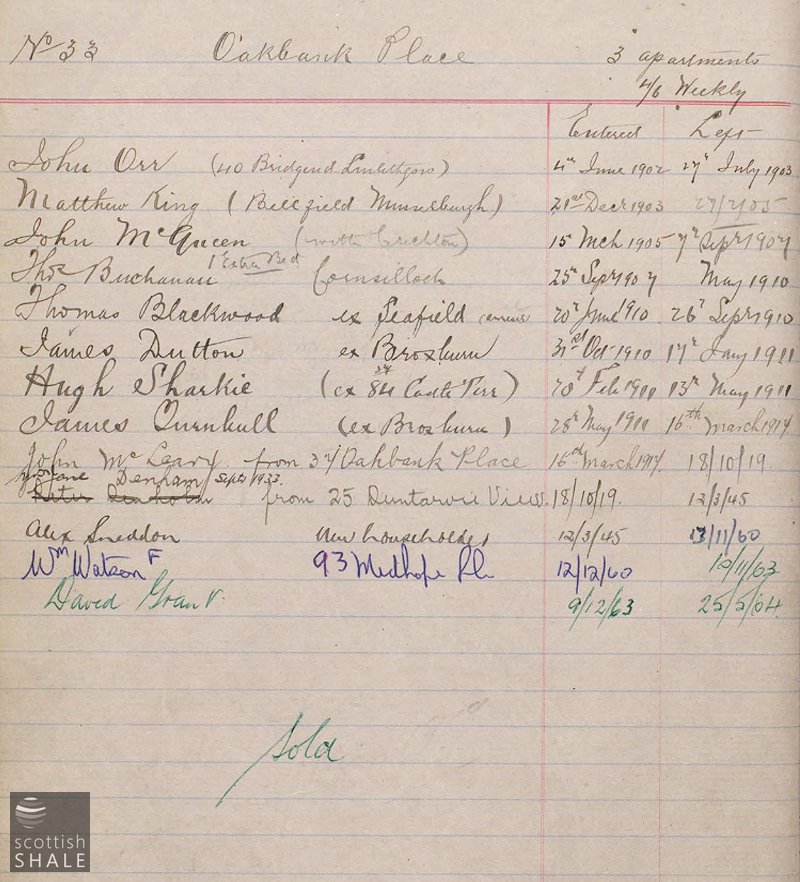 No 33 Oakbank Place 3 apartments
4/6 Weekly
Entered Left
John Orr (40 Bridgend Linlithgow) 4th June 1902 27th July 1903
Matthew King (Bellfield Musselburgh) 21st Decr 1903 27/2/05
John McQueen (with Crichton) 15 Mch 1905 7th Septr 1907
1 Extra Bed
Thos Buchanan Cornsilloch 25th Sepr 1907 May 1910
Thomas Blackwood ex Seafield 20th June 1910 26th Sepr 1910
James Dutton ex Broxburn 31st Oct 1910 17th Jany 1911
Hugh Sharkie (ex 84 Cadle Terr) 20th Feb 1911 13th May 1911
James Turnbull (ex Broxburn) 25th May 1911 16th March 1914
John McLeary from 37 Oakbank Place 16th March 1914 18/10/19
Jane Denham Sept 1933
Peter Denholm from 25 Duntarvie View 18/10/19. 12/3/45
Alex Sneddon New householder 12/3/45 13/11/60
Wm Watson F 93 Midhope Pl. 12/12/60 10/11/63
David Grant 9/12/63 25/5/64.
Sold
scottish
SHALE